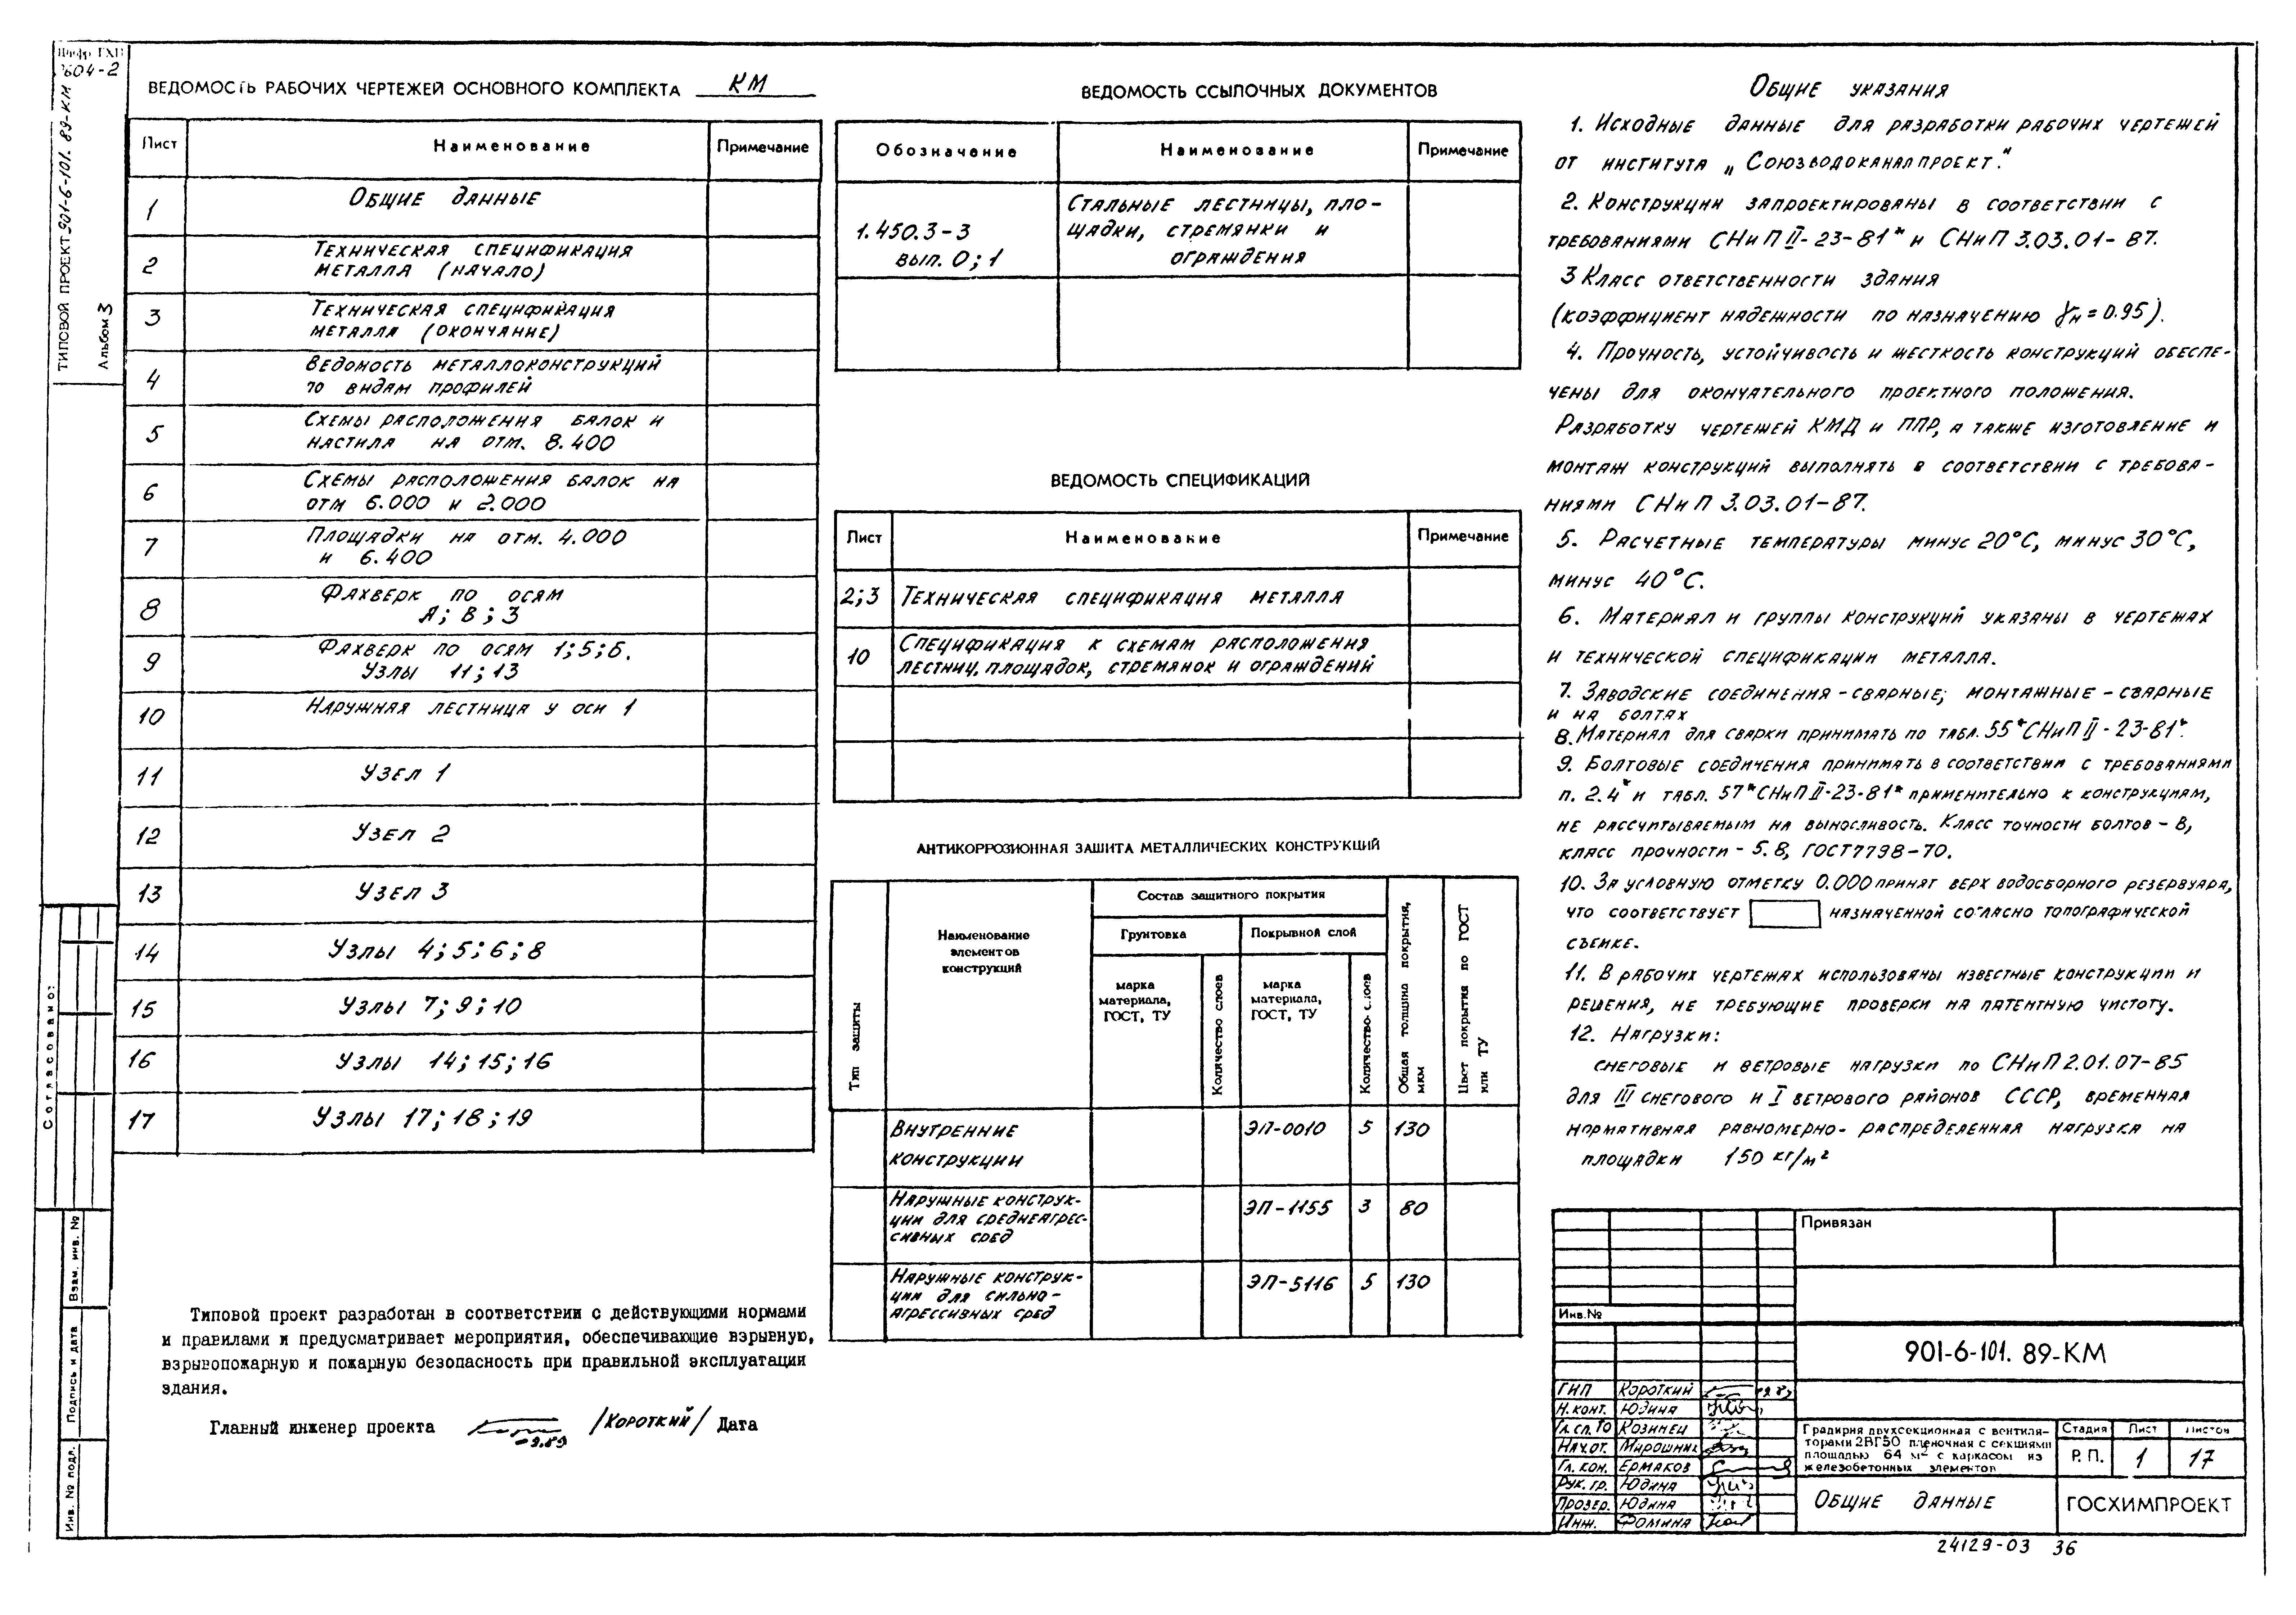 Шифр ГХП
604-2
ТИПОВОЙ ПРОЕКТ 901-6-101.89-КМ
Альбом 3
ВЕДОМОСТЬ РАБОЧИХ ЧЕРТЕЖЕЙ ОСНОВНОГО КОМПЛЕКТА КМ
Лист Наименование Примечание
1 Общие данные
2 Техническая спецификация
металла (начало)
3 Техническая спецификация
металла (окончание)
4 Ведомость металлоконструкций
по видам профилей
5 Схемы расположения балок и
настила на отм. 8.400
6 Схемы расположения балок на
отм 6.000 и 2.000
7 Площадки на отм. 4.000
и 6.400
8 Фахверк по осям
А; В; 3
9 Фахверк по осям 1;5;6.
Узлы 11;13
10 Наружная лестница у оси 1
11 Узел 1
12 Узел 2
13 Узел 3
14 Узлы 4;5;6;8
15 Узлы 7;9;10
16 Узлы 14;15;16
17 Узлы 17;18;19
Типовой проект разработан в соответствии с действующими нормами
и правилами и предусматривает мероприятия, обеспечивающие взрывную,
взрывопожарную и пожарную безопасность при правильной эксплуатации
здания.
Главный инженер проекта /Короткий/ Дата
Согласовано:
Взам. инв. №
Подпись и дата
Инв. № подл.
ВЕДОМОСТЬ ССЫЛОЧНЫХ ДОКУМЕНТОВ
Обозначение Наименование Примечание
1.450.3-3
вып. 0; 1
Стальные лестницы, пло-
щадки, стремянки и
ограждения
ВЕДОМОСТЬ СПЕЦИФИКАЦИЙ
Лист Наименование Примечание
2;3 Техническая спецификация металла
10 Спецификация к схемам расположения
лестниц, площадок, стремянок и ограждений
АНТИКОРРОЗИОННАЯ ЗАЩИТА МЕТАЛЛИЧЕСКИХ КОНСТРУКЦИЙ
Тип защиты
Наименование
элементов
конструкций
Состав защитного покрытия
Грунтовка Покрывной слой
марка
материала,
ГОСТ, ТУ
Количество слоев
марка
материала,
ГОСТ, ТУ
Количество слоев
Общая толщина покрытия,
мкм
Цвет покрытия по ГОСТ
или ТУ
Внутренние
конструкции
ЭП-0010 5 130
Наружные конструк-
ции для среднеагрес-
сивных сред
ЭП-1155 3 80
Наружные конструк-
ции для сильно-
агрессивных сред
ЭП-5116 5 130
Общие указания
1. Исходные данные для разработки рабочих чертежей
от института „Союзводоканалпроект."
2. Конструкции запроектированы в соответствии с
требованиями СНиП II-23-81* и СНиП 3.03.01-87.
3 Класс ответственности здания
(коэффициент надежности по назначению γн=0.95).
4. Прочность, устойчивость и жесткость конструкций обеспе-
чены для окончательного проектного положения.
Разработку чертежей КМД и ППР, а также изготовление и
монтаж конструкций выполнять в соответствии с требова-
ниями СНиП 3.03.01-87.
5. Расчетные температуры минус 20°С, минус 30°С,
минус 40°С.
6. Материал и группы конструкций указаны в чертежах
и технической спецификации металла.
7. Заводские соединения - сварные; монтажные - сварные
и на болтах
8. Материал для сварки принимать по табл. 55* СНиП II-23-81*.
9. Болтовые соединения принимать в соответствии с требованиями
п. 2.4* и табл. 57* СНиП II-23-81* применительно к конструкциям,
не рассчитываемым на выносливость. Класс точности болтов - В,
класс прочности - 5.8, ГОСТ 7798-70.
10. За условную отметку 0.000 принят верх водосборного резервуара,
что соответствует назначенной согласно топографической
съемке.
11. В рабочих чертежах использованы известные конструкции и
решения, не требующие проверки на патентную чистоту.
12. Нагрузки:
снеговые и ветровые нагрузки по СНиП 2.01.07-85
для III снегового и I ветрового районов СССР, временная
нормативная равномерно-распределенная нагрузка на
площадки 150 кг/м²
Привязан
Инв.№
901-6-101. 89-КМ
ГИП Короткий
Н. конт. Юдина
Гл. сп. ТО Козинец
Нач. от. Мирошник
Гл. кон. Ермаков
Рук. гр. Юдина
Провер. Юдина
Инж. Фомина
Градирня двухсекционная с вентиля-
торами 2ВГ50 пленочная с секциями
площадью 64 м² с каркасом из
железобетонных элементов
Стадия Лист Листов
Р.П. 1 17
Общие данные
ГОСХИМПРОЕКТ
24129-03 36